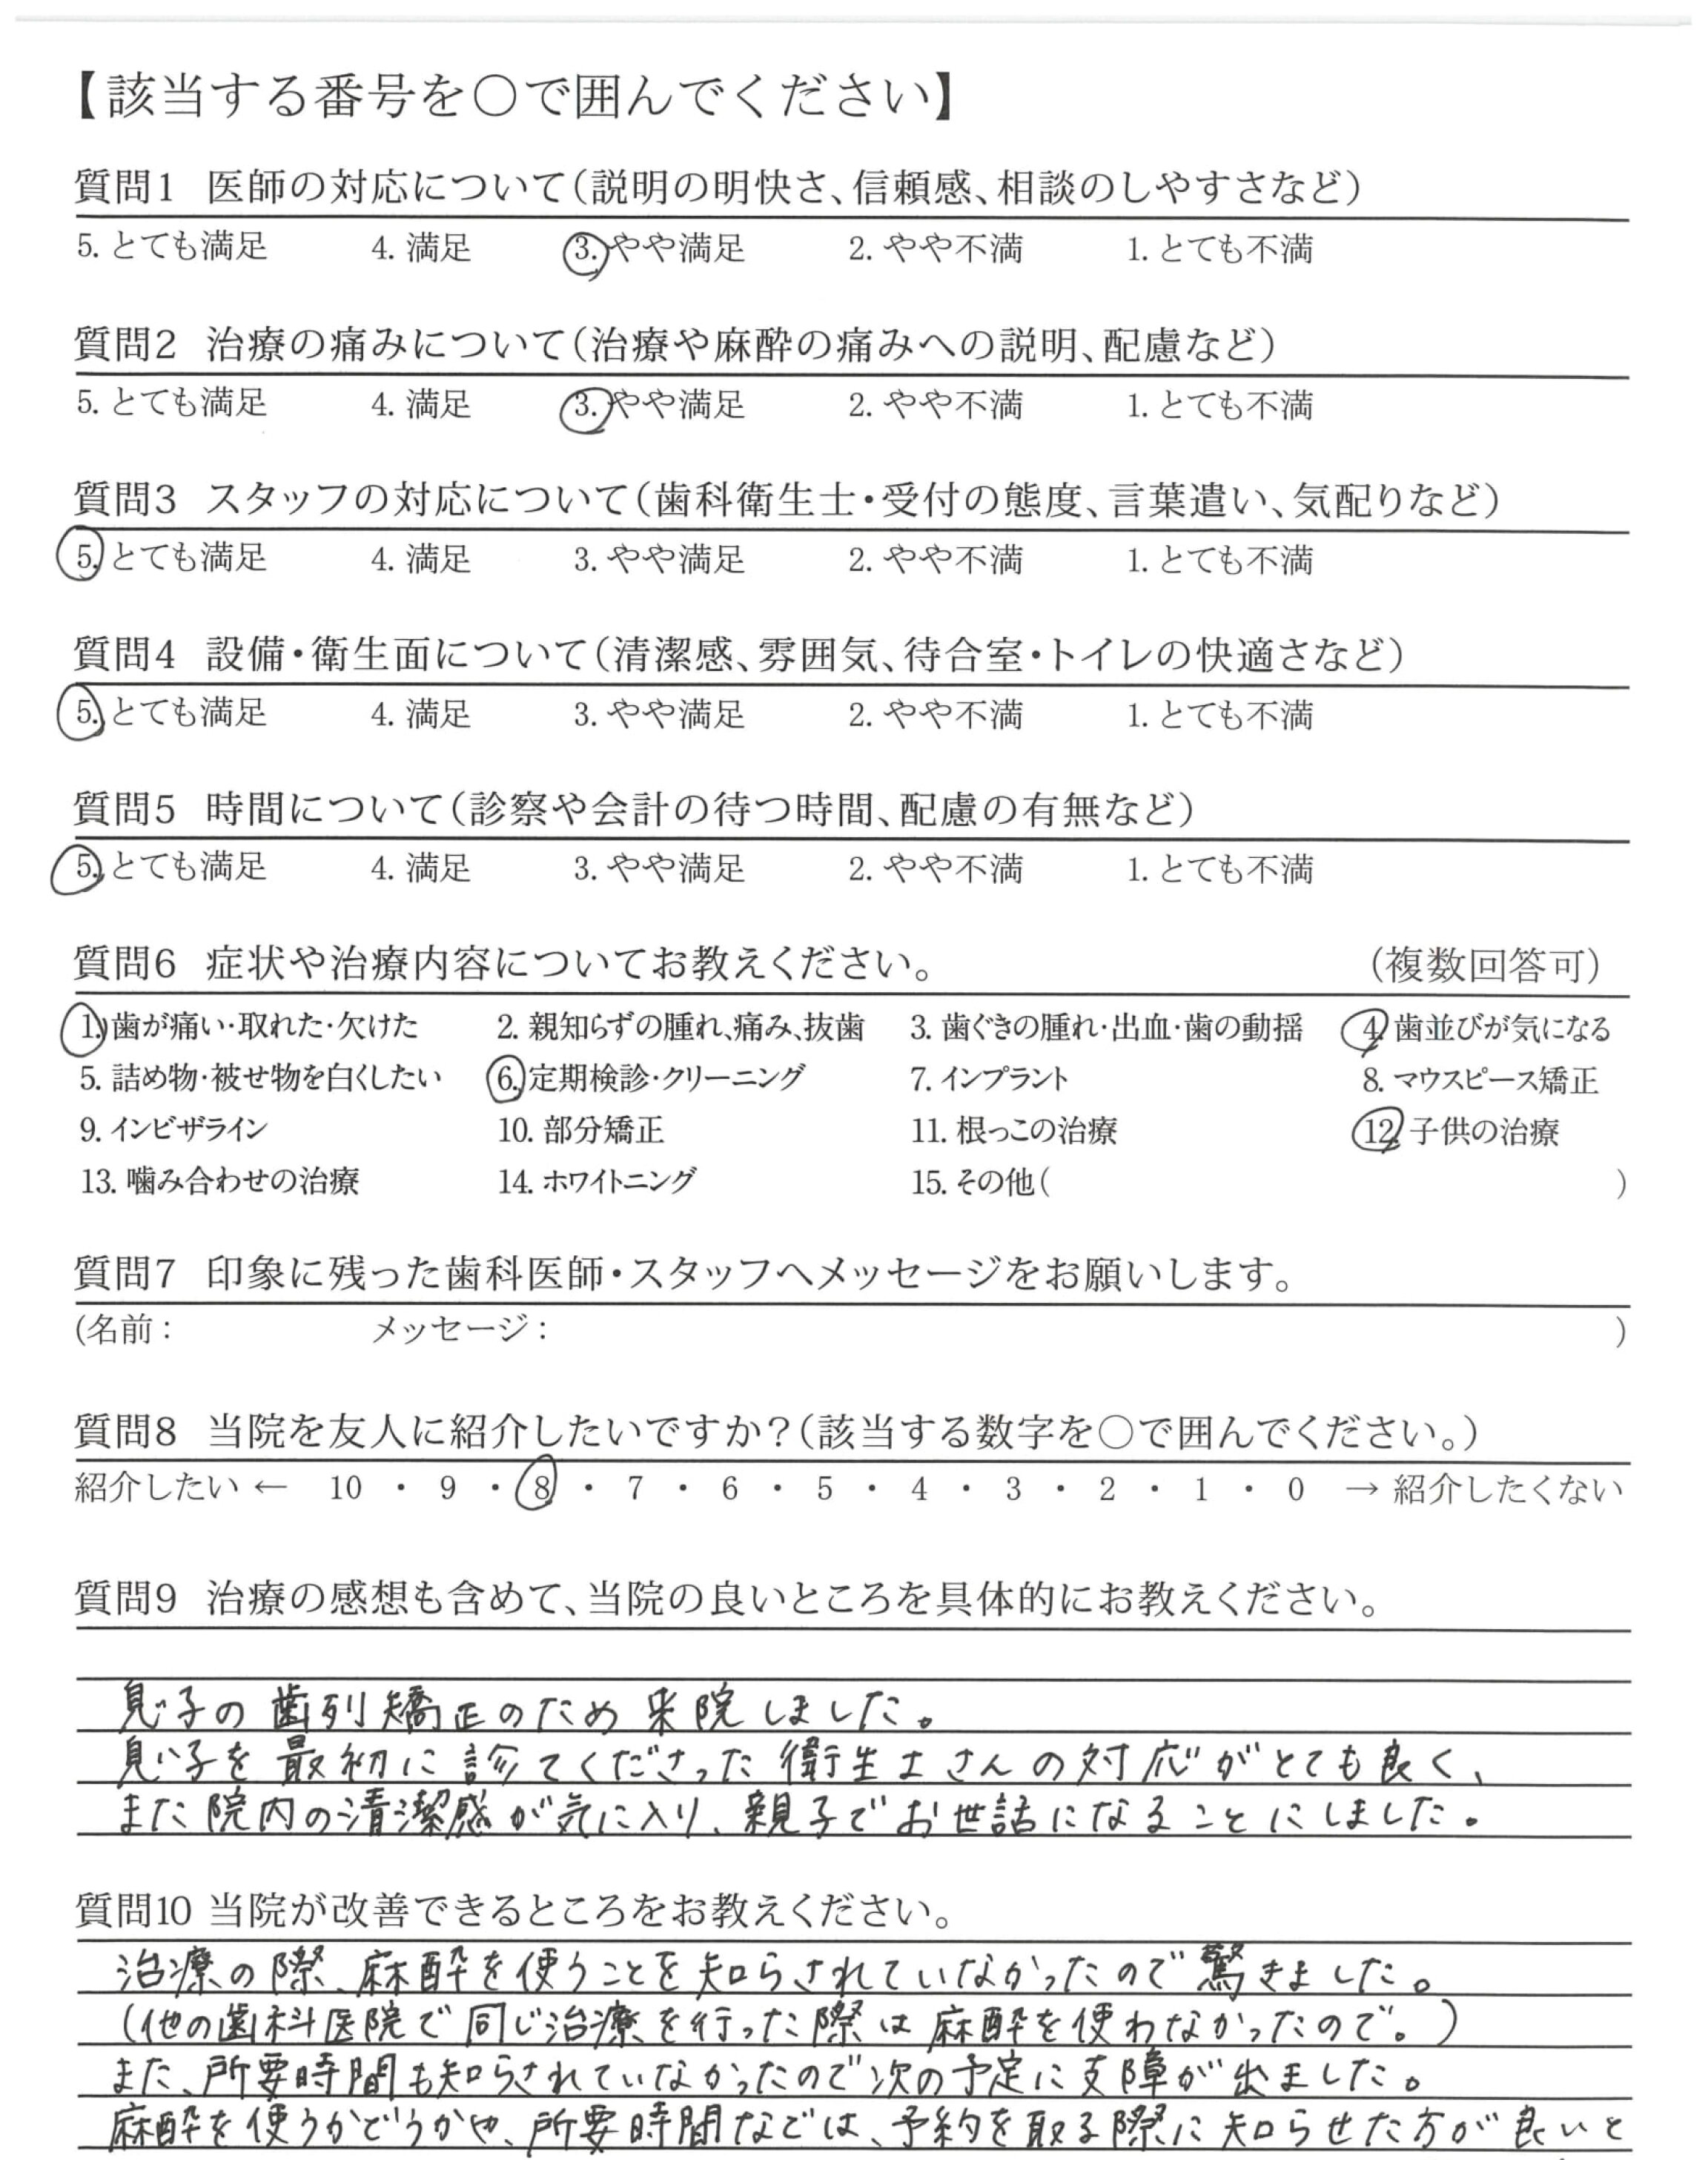 【該当する番号を○で囲んでください】
質問1 医師の対応について(説明の明快さ、信頼感、相談のしやすさなど)
5. とても満足 4. 満足 3. やや満足 2. やや不満 1. とても不満
質問2 治療の痛みについて(治療や麻酔の痛みへの説明、配慮など)
5. とても満足 4. 満足 3. やや満足 2. やや不満 1. とても不満
質問3 スタッフの対応について(歯科衛生士・受付の態度、言葉遣い、気配りなど)
5. とても満足 4. 満足 3. やや満足 2. やや不満 1. とても不満
質問4 設備・衛生面について(清潔感、雰囲気、待合室・トイレの快適さなど)
5. とても満足 4. 満足 3. やや満足 2. やや不満 1. とても不満
質問5 時間について(診察や会計の待つ時間、配慮の有無など)
5. とても満足 4. 満足 3. やや満足 2. やや不満 1. とても不満
質問6 症状や治療内容についてお教えください。 (複数回答可)
1. 歯が痛い・取れた・欠けた 2. 親知らずの腫れ、痛み、抜歯 3. 歯ぐきの腫れ・出血・歯の動揺 4. 歯並びが気になる
5. 詰め物・被せ物を白くしたい 6. 定期検診・クリーニング 7. インプラント 8. マウスピース矯正
9. インビザライン 10. 部分矯正 11. 根っこの治療 12. 子供の治療
13. 噛み合わせの治療 14. ホワイトニング 15. その他( )
質問7 印象に残った歯科医師・スタッフへメッセージをお願いします。
(名前: メッセージ: )
質問8 当院を友人に紹介したいですか?(該当する数字を○で囲んでください。)
紹介したい ← 10 ・ 9 ・ 8 ・ 7 ・ 6 ・ 5 ・ 4 ・ 3 ・ 2 ・ 1 ・ 0 → 紹介したくない
質問9 治療の感想も含めて、当院の良いところを具体的にお教えください。
息子の歯列矯正のため来院しました。
息子を最初に診てくださった衛生士さんの対応がとても良く、
また院内の清潔感が気に入り、親子でお世話になることにしました。
質問10 当院が改善できるところをお教えください。
治療の際、麻酔を使うことを知らされていなかったので驚きました。
(他の歯科医院で同じ治療を行った際は麻酔を使わなかったので。)
また、所要時間も知らされていなかったので次の予定に支障が出ました。
麻酔を使うかどうかや、所要時間などは、予約を取る際に知らせた方が良いと